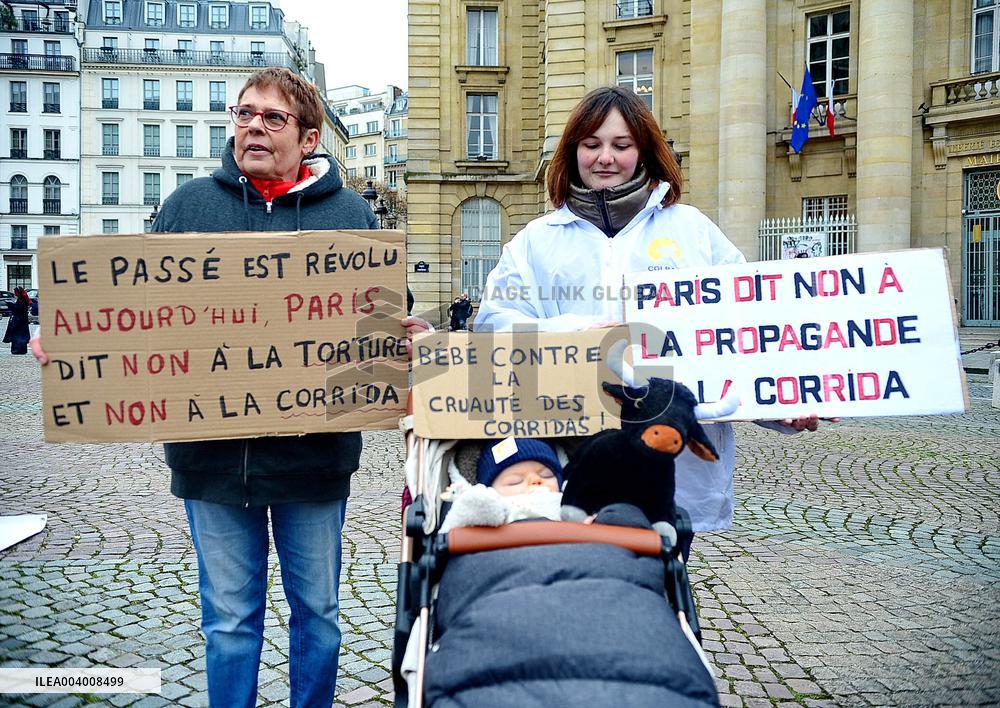 LE PASSÉ EST RÉVOLU.
AUJOURD'HUI, PARIS
DIT NON À LA TORTURE
ET NON À LA CORRIDA
BÉBÉ CONTRE
LA
CRUAUTÉ DES
CORRIDAS !
PARIS DIT NON À
LA PROPAGANDE
LA CORRIDA
IMAGE LINK GLOBAL
ILG
ILEA004008499